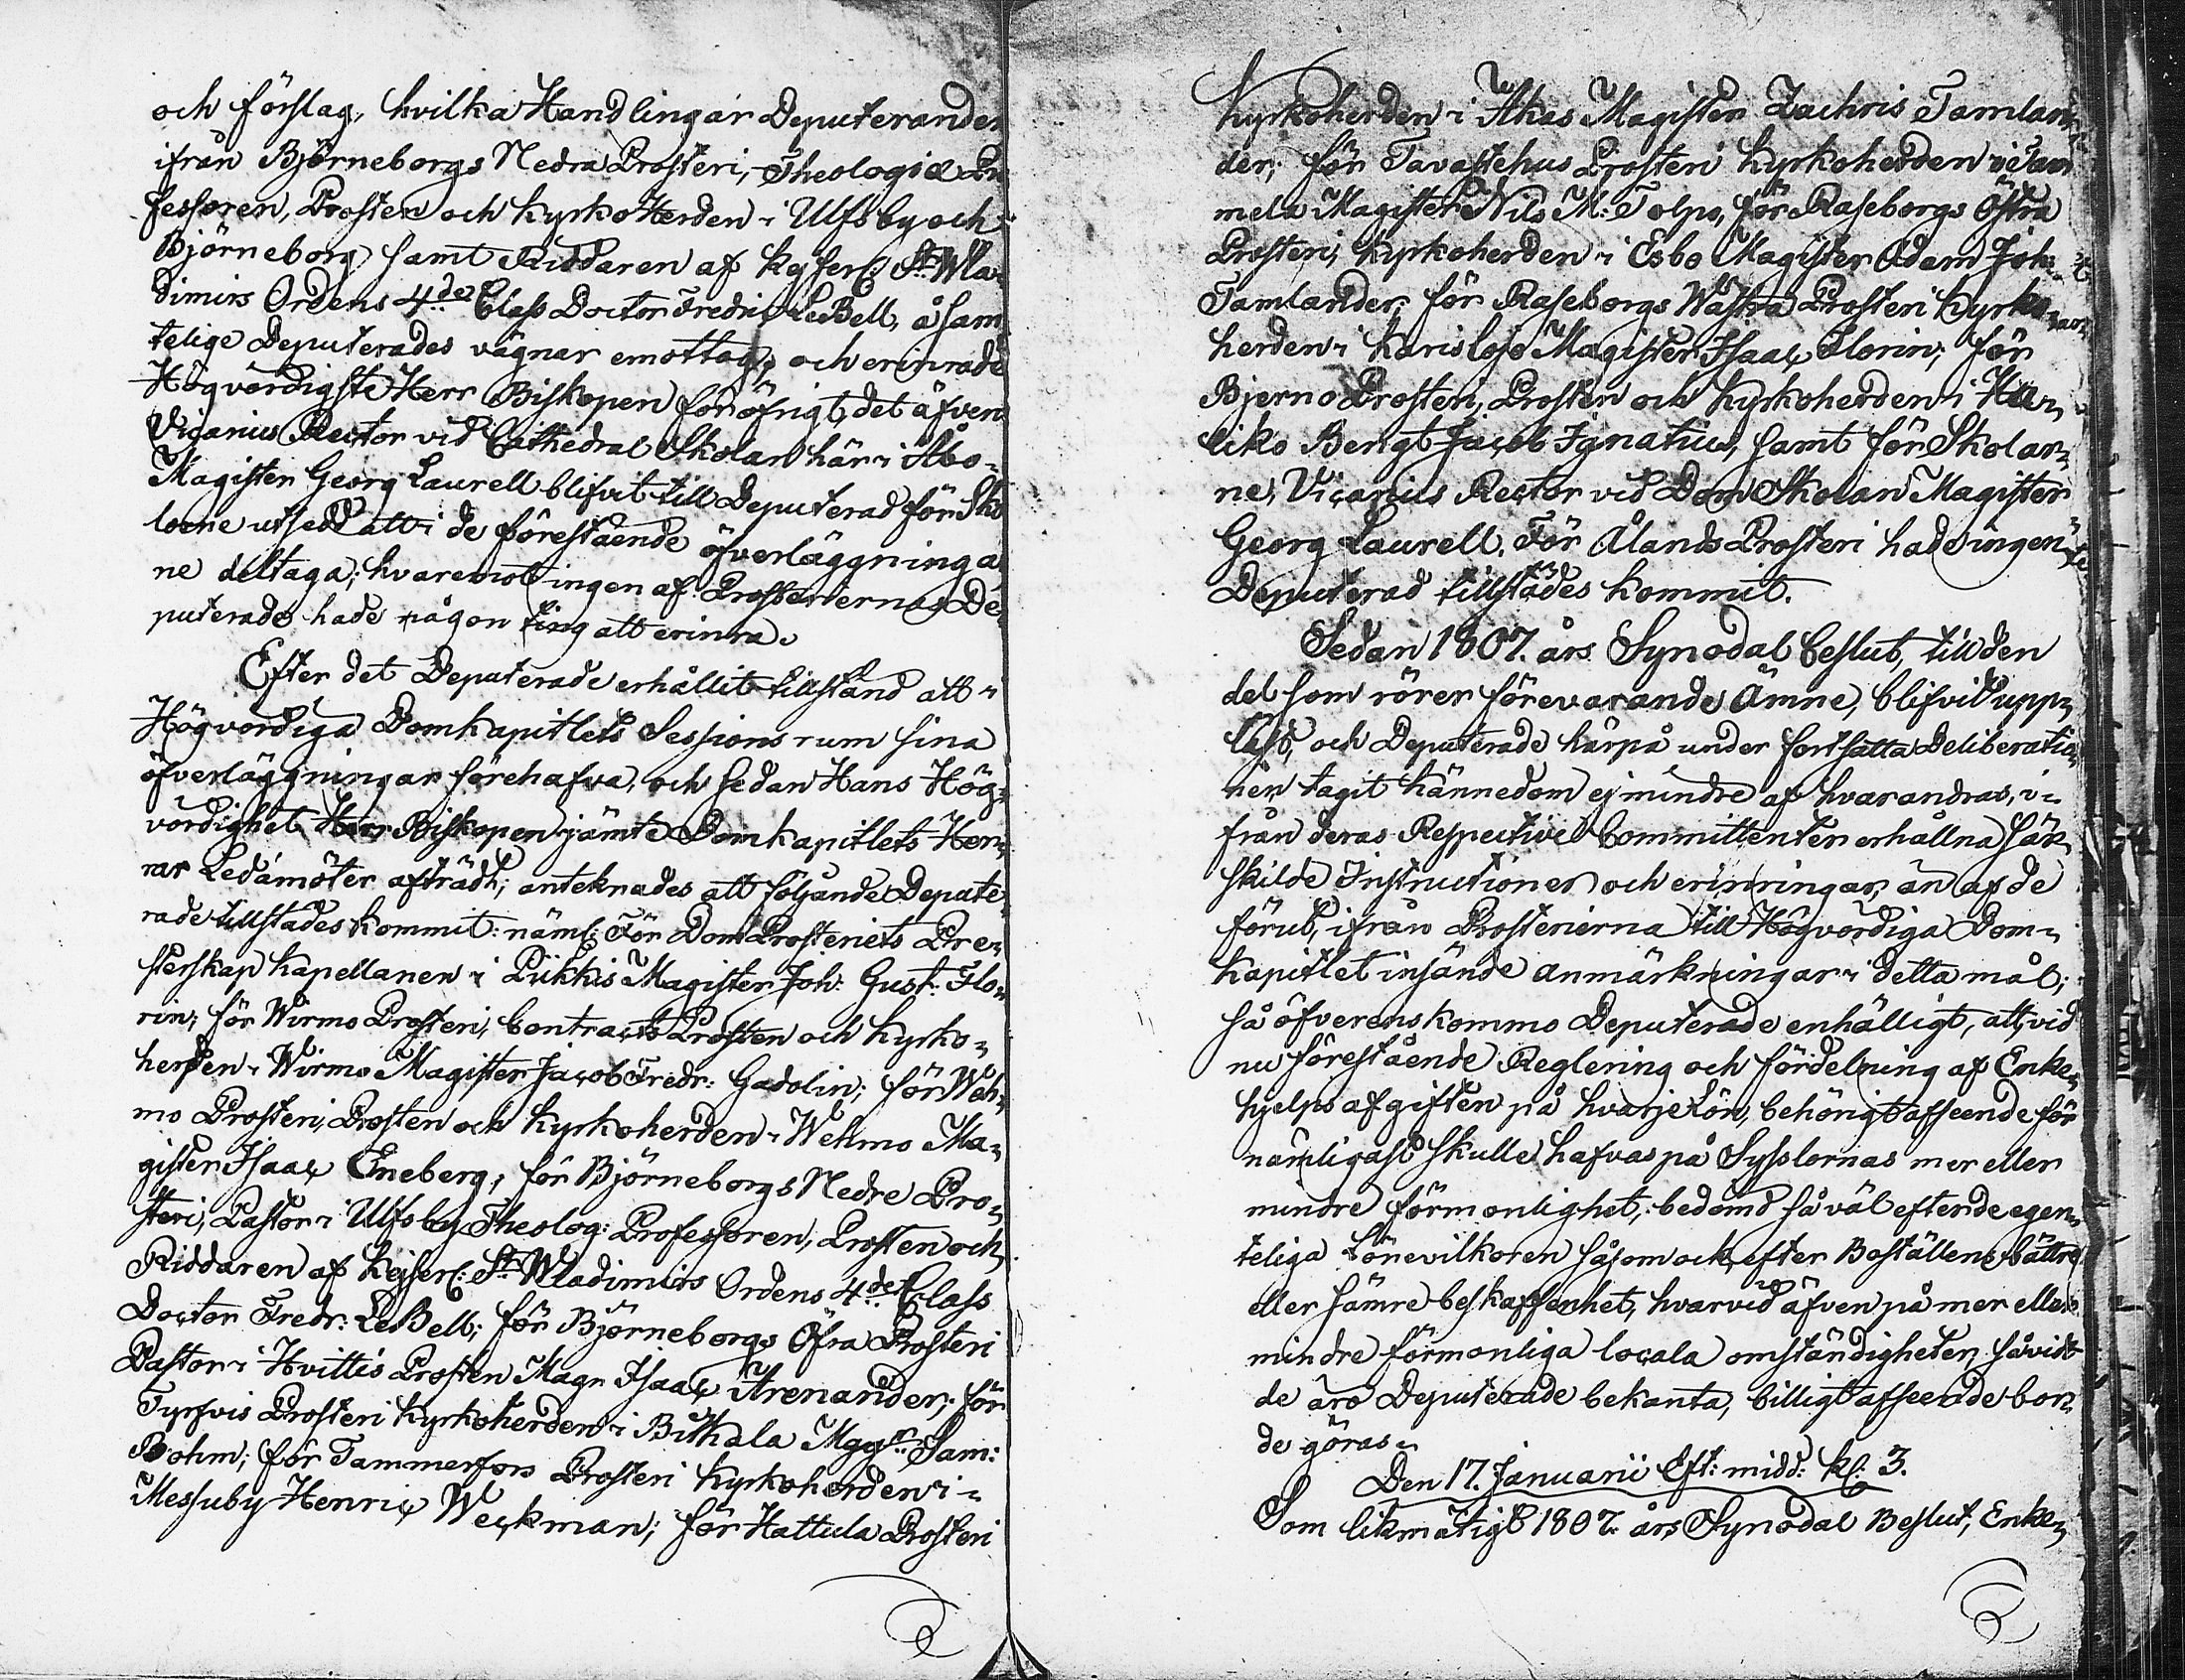 och förslag, hvilka Handlingar Deputeranden
ifrån Björneborgs Nedra Prosteri, Theologiæ Pro
fessoren, Prosten och KyrkoHerden i Ulfsby och
Björneborg samt Riddaren af Kejserl: S:t Wla-
dimirs Ordens 4:de Class Doctor Fredric LeBell, å sam
telige Deputerades vägnar emottog, och erinrade
Högvördigste Herr Biskopen föröfrigt, det äfven
Vicarius Rector vid Cathedral Skolan här i Åbo
Magister Georg Laurell blifvit till Deputerad för Sko
lorne utsedd att i de förestående öfverläggninga
ne deltaga; hvaremot ingen af Prosteriernas De
puterade hade någon ting att erinra.
Efter det Deputerade erhållit tillstånd att i
Högvördiga Domkapitlets Sessions rum sina
öfverläggningar förehafva, och sedan Hans Hög-
vördighet Herr Biskopen jämte Domkapitlets Her-
rar Ledamöter afträdt, anteknades att följande Depute
rade tillstädes kommit: näml: För DomProsteriets Pre-
sterskap Kapellanen i Piikkis Magister Joh: Gust: Flo-
rin; för Wirmo Prosteri, Contracts Prosten och Kyrko-
herden i Wirmo Magister Jacob Fredr: Gadolin; för Weh-
mo Prosteri, Prosten och Kyrkoherden i Wehmo Ma-
gister Isaac Eneberg; för Björneborgs Nedre Pro-
steri, Pastor i Ulfsby Theolog: Professoren, Prosten och
Riddaren af Kejserl: S:t Wladimirs Ordens 4:de Class
Doctor Fredr: LeBell; för Björneborgs Öfra Prosteri
Pastor i Hvittis Prosten Magr Isaac Arenander; för
Tyrfvis Prosteri Kyrkoherden i Birkala Mgr Sam:
Bohm; för Tammerfors Prosteri Kyrkoherden i
Messuby Henric Weckman; för Hattula Prosteri
Kyrkoherden i Akas Magister Zachris Tamlan
der; för Tavastehus Prosteri Kyrkoherden i Tam
mela Magister Nils M: Tolpo, för Raseborgs Östra
Prosteri, Kyrkoherden i Esbo Magister Adam Joh:
Tamlander; för Raseborgs Wästra Prosteri Kyrko
herden i Karislojo Magister Isaac Florin; för
Bjerno Prosteri, Prosten och Kyrkoherden i Ha-
liko Bengt Jacob Ignatius, samt för Skolar-
ne, Vicarius Rector vid Dom Skolan Magister
Georg Laurell. För Ålands Prosteri hade ingen
Deputerad tillstädes kommit.
Sedan 1807. års Synodal beslut, till den
del som rörer förevarande Ämne, blifvit upp-
läst, och Deputerade härpå under fortsatta Deliberatio
ner tagit kännedom ej mindre af hvarandras, i-
från deras Respective Committenter erhållna sär-
skilde Instructioner och erinringar, än af de
förut, ifrån Prosterierna till Högvördiga Dom-
kapitlet insände anmärkningar i detta mål;
så öfverenskommo Deputerade enhälligt, att, vid
nu förestående Reglering och fördelning af Enke-
hjelps afgiften på hvarje Lön, behörigt afseende för
nämligast skulle hafvas på Sysslornas mer eller
mindre förmonlighet, bedömd så väl efter de egen-
teliga Lönevilkoren såsom ock efter Boställens bättre
eller sämre beskaffenhet, hvarvid äfven på mer eller
mindre förmonliga locala omständigheter, såvidt
de äro Deputerade bekanta, billigt afseende bor-
de göras.
Den 17. Januarii Eft: midd: Kl: 3.
Som likmätigt 1807. års Synodal Beslut, Enke-